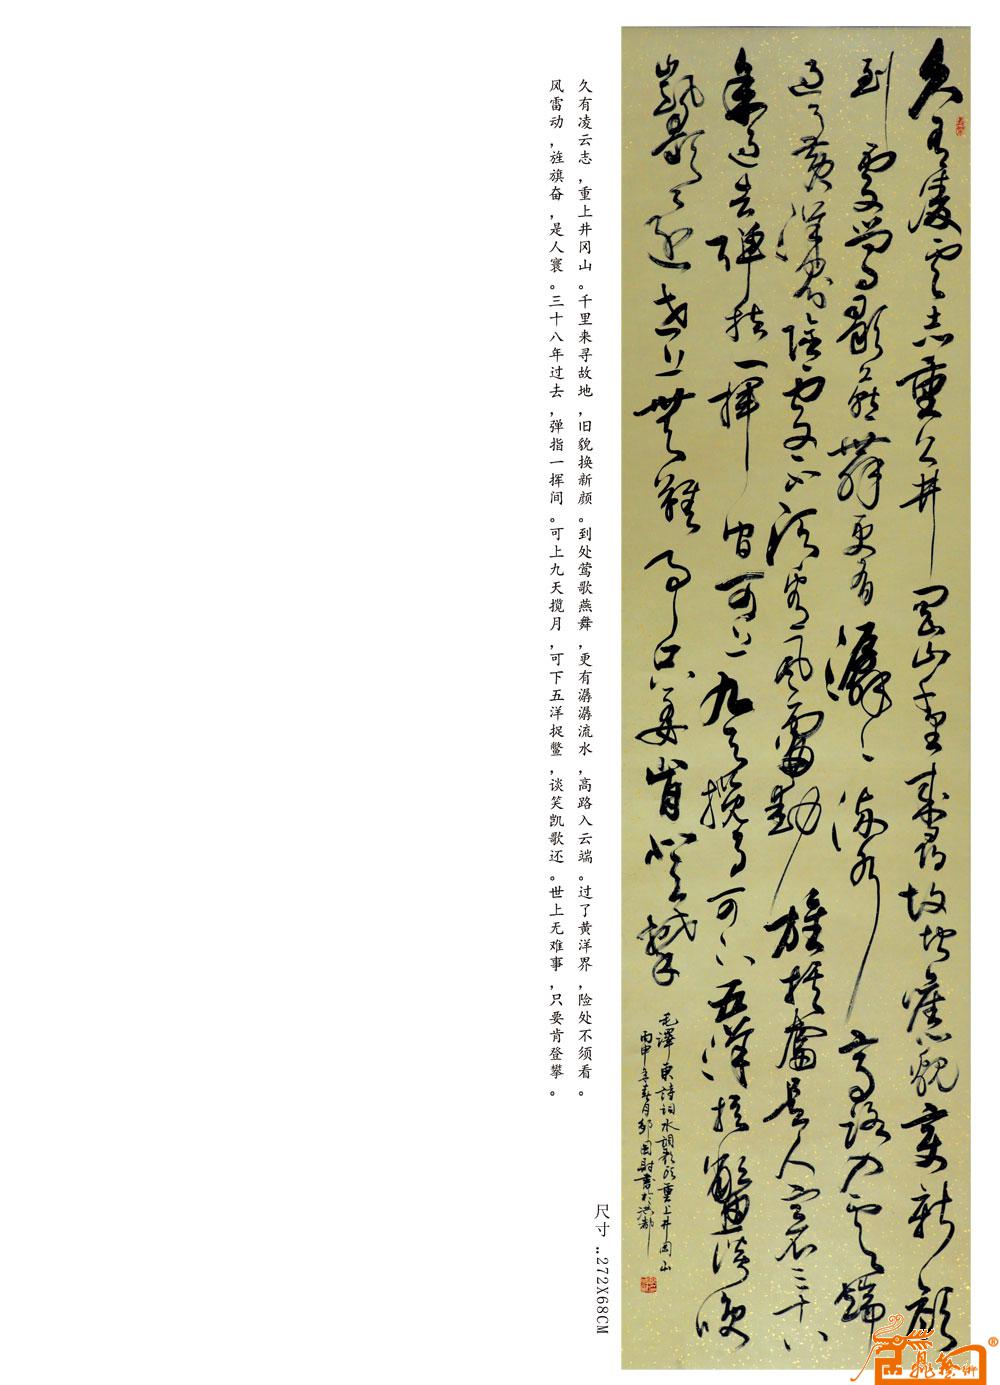 久有凌雲志重上井岡山千里來尋故地舊貌變新顏
到處鶯歌燕舞更有潺潺流水高路入雲端
過了黃洋界險處不須看風雷動旌旗奮是人寰三十八
年過去彈指一揮間可上九天攬月可下五洋捉鱉談笑
凱歌還世上無難事只要肯登攀
毛澤東詩詞水調歌頭重上井岡山
丙申年春月國書於洪都
久有凌云志，重上井冈山。千里来寻故地，旧貌换新颜。到处莺歌燕舞，更有潺潺流水，高路入云端。过了黄洋界，险处不须看。
风雷动，旌旗奋，是人寰。三十八年过去，弹指一挥间。可上九天揽月，可下五洋捉鳖，谈笑凯歌还。世上无难事，只要肯登攀。
尺寸：272X68CM